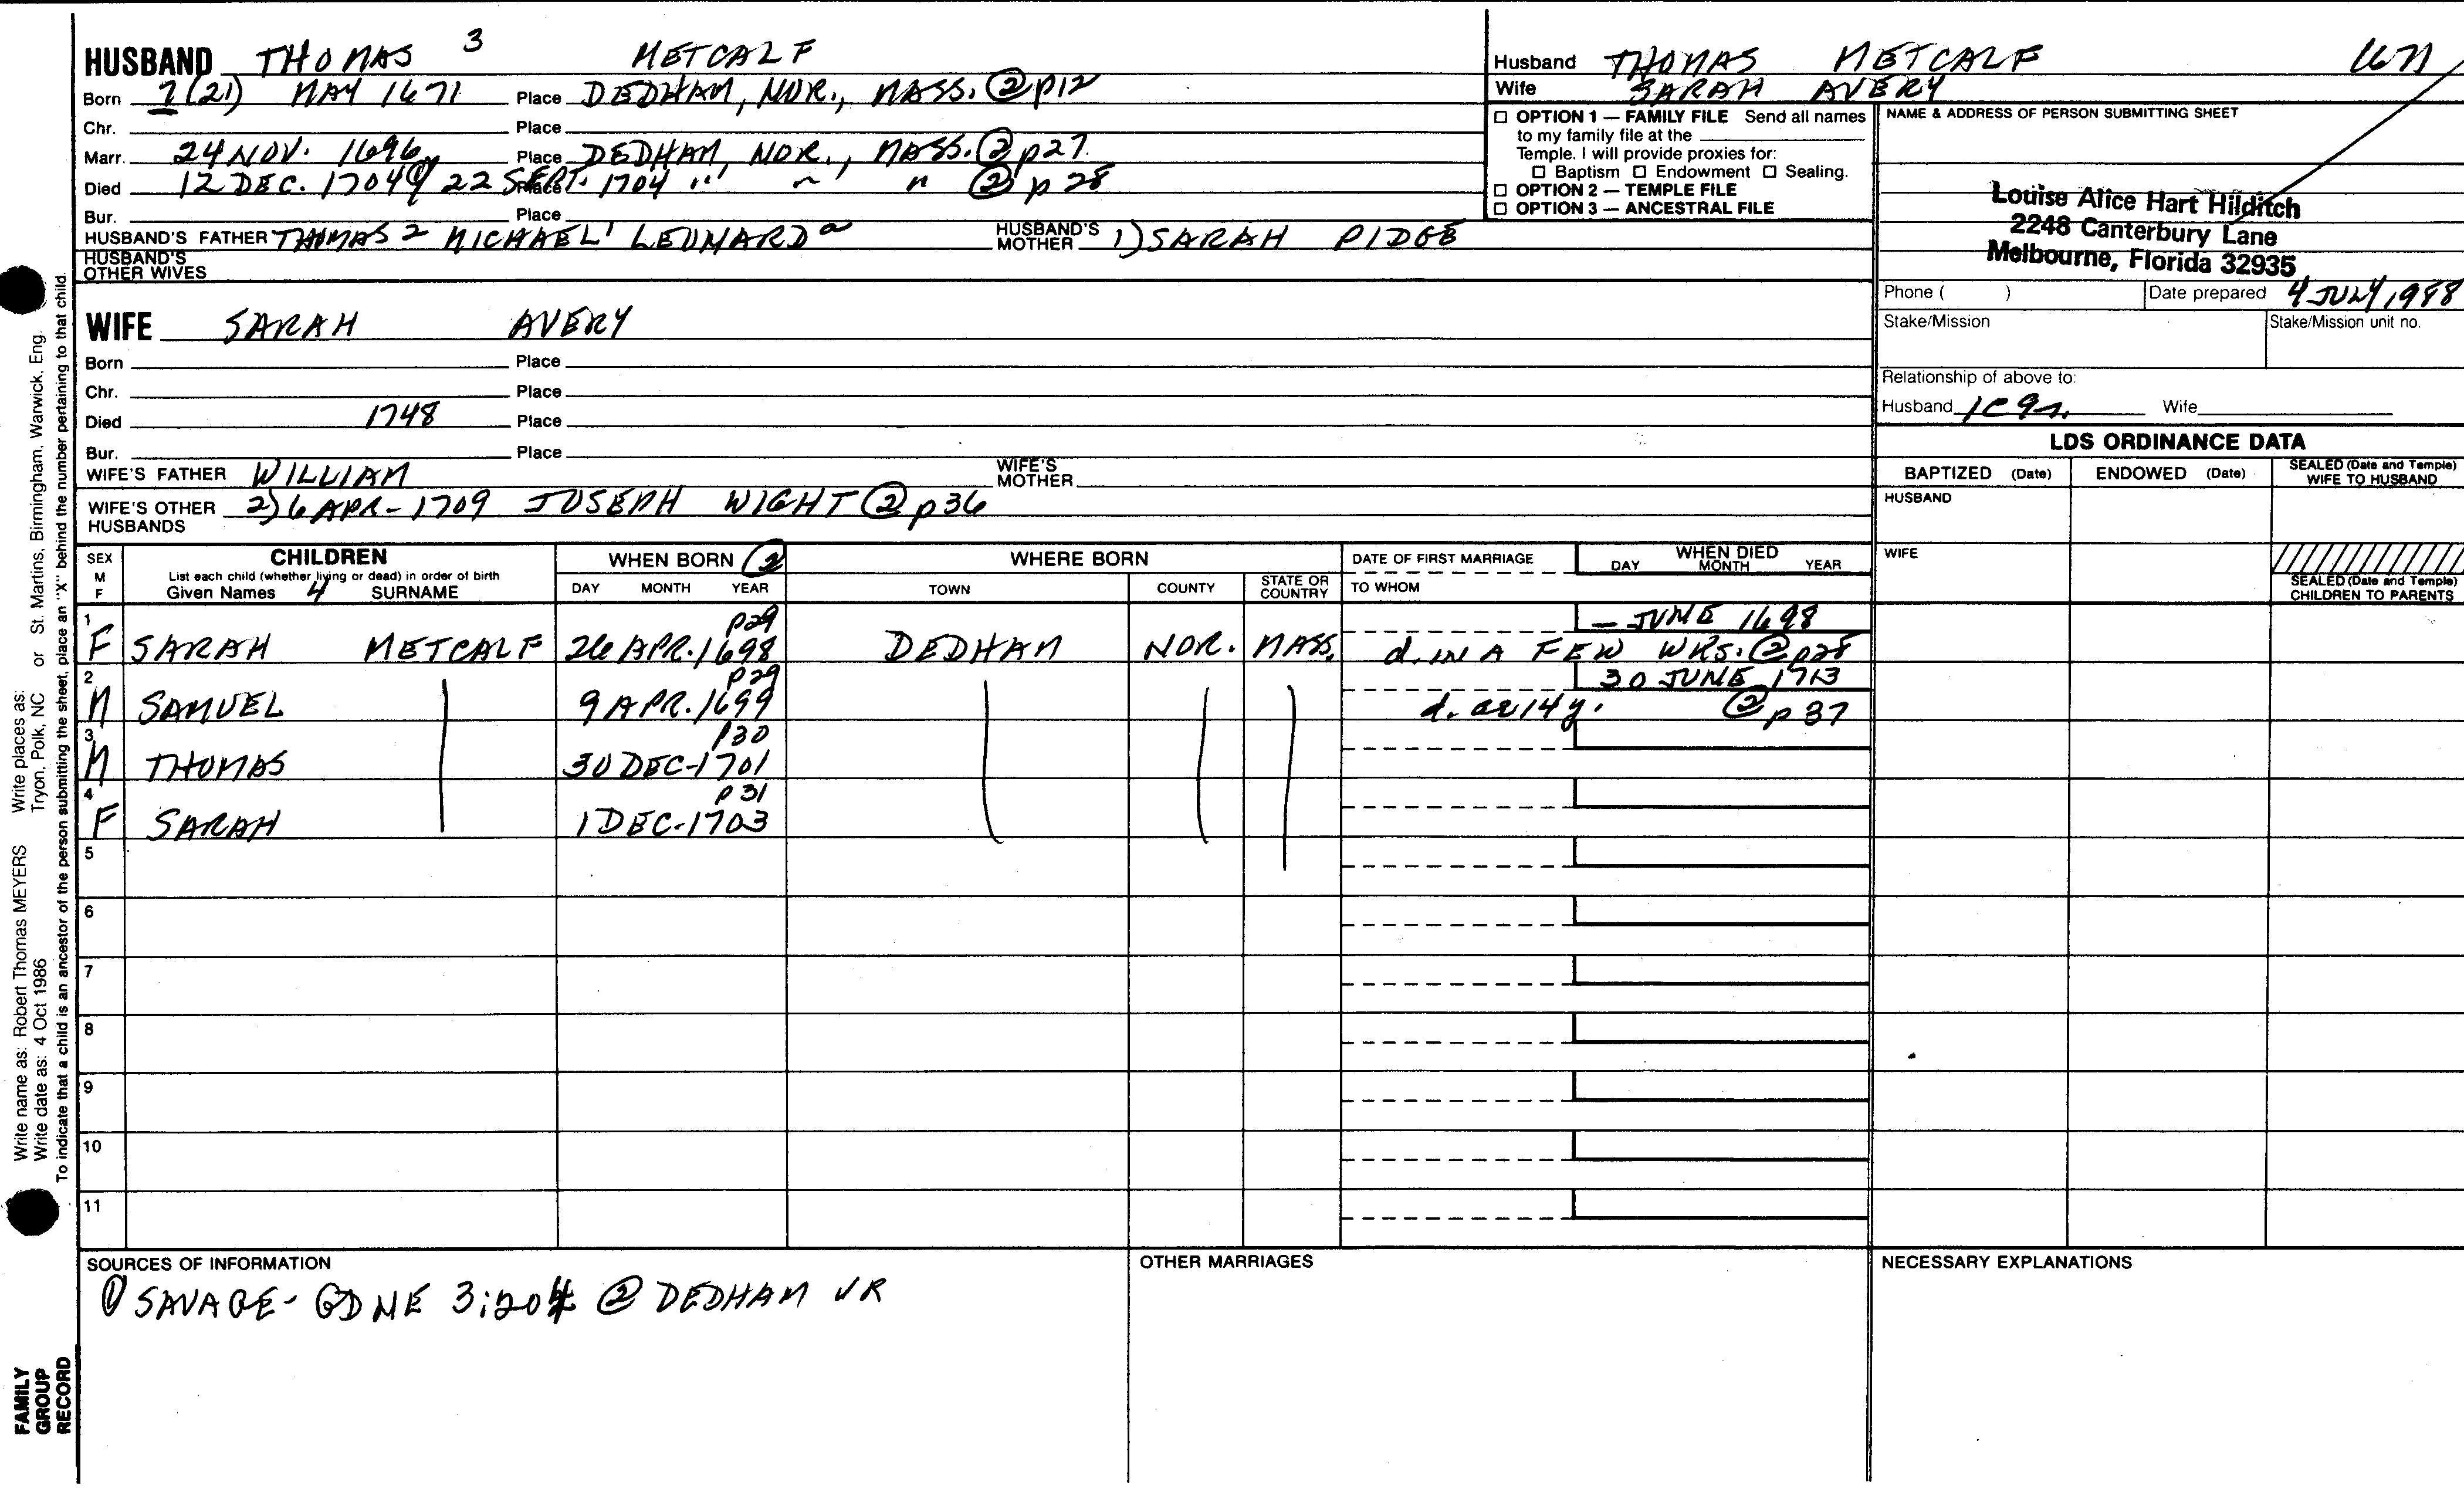 HUSBAND THOMAS 3 METCALF
Born 7 (21) MAY 1671 Place DEDHAM, NOR., MASS. ② p12
Chr. Place
Marr. 24 NOV. 1696 Place DEDHAM, NOR., MASS. ② p27
Died 12 DEC. 1704 ① 22 SEPT. 1704 Place " " " ② p 28
Bur. Place
HUSBAND'S FATHER THOMAS 2 MICHAEL 1 LEONARD a HUSBAND'S MOTHER 1) SARAH PIDGE
HUSBAND'S OTHER WIVES
Husband THOMAS METCALF 1671
Wife SARAH AVERY
☐ OPTION 1 — FAMILY FILE Send all names
to my family file at the
Temple. I will provide proxies for:
☐ Baptism ☐ Endowment ☐ Sealing.
☐ OPTION 2 — TEMPLE FILE
☐ OPTION 3 — ANCESTRAL FILE
NAME & ADDRESS OF PERSON SUBMITTING SHEET
Louise Alice Hart Hilditch
2248 Canterbury Lane
Melbourne, Florida 32935
Phone ( ) Date prepared 4 JULY 1988
Stake/Mission Stake/Mission unit no.
Relationship of above to:
Husband 1C 9r. Wife
WIFE SARAH AVERY
Born Place
Chr. Place
Died 1748 Place
Bur. Place
WIFE'S FATHER WILLIAM WIFE'S MOTHER
WIFE'S OTHER HUSBANDS 2) 6 APR- 1709 JOSEPH WIGHT ② p36
LDS ORDINANCE DATA
BAPTIZED (Date) ENDOWED (Date) SEALED (Date and Temple) WIFE TO HUSBAND
HUSBAND
WIFE
SEALED (Date and Temple) CHILDREN TO PARENTS
SEX M F CHILDREN WHEN BORN ② WHERE BORN DATE OF FIRST MARRIAGE WHEN DIED
List each child (whether living or dead) in order of birth
Given Names 4 SURNAME DAY MONTH YEAR TOWN COUNTY STATE OR COUNTRY TO WHOM DAY MONTH YEAR
1 p29 – JUNE 1698
F SARAH METCALF 26 APR. 1698 DEDHAM NOR. MASS. d. IN A FEW WKS. ② p28
2 p29 30 JUNE 1713
M SAMUEL 9 APR. 1699 d. ae 14 y. ② p 37
3 p30
M THOMAS 30 DEC-1701
4 p 31
F SARAH 1 DEC-1703
5
6
7
8
9
10
11
SOURCES OF INFORMATION
① SAVAGE- GDNE 3:204 ② DEDHAM VR
OTHER MARRIAGES
NECESSARY EXPLANATIONS
Write name as: Robert Thomas MEYERS Write places as:
Write date as: 4 Oct 1986 Tryon, Polk, NC or St. Martins, Birmingham, Warwick, Eng.
To indicate that a child is an ancestor of the person submitting the sheet, place an "X" behind the number pertaining to that child.
FAMILY
GROUP
RECORD